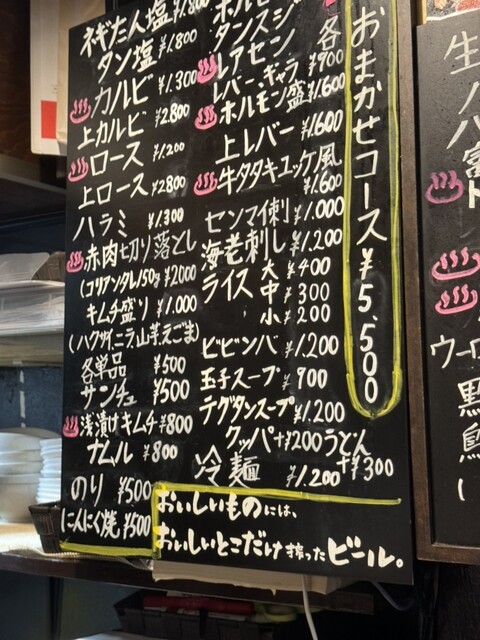 ネギたん塩 ¥1.800
タン塩 ¥1.800
カルビ ¥1.300
上カルビ ¥2.800
ロース ¥1.200
上ロース ¥2800
ハラミ ¥1.300
赤肉切り落とし
(コリアンタレ)150g ¥2000
キムチ盛り ¥1.000
(ハクサイ、ニラ、山芋、えごま)
各単品 ¥500
サンチュ ¥500
浅漬けキムチ ¥800
ナムル ¥800
のり ¥500
にんにく焼 ¥500
タンスジ
レアセン 各
レバー、ギャラ ¥900
ホルモン盛 ¥1.600
上レバー ¥1.600
牛タタキユッケ風
¥1.600
センマイ刺 ¥1.000
海老刺し ¥1.200
ライス 大 ¥400
中 ¥300
小 ¥200
ビビンバ ¥1.200
玉子スープ ¥900
テグタンスープ ¥1.200
クッパ+¥200 うどん
+¥300
冷麺 ¥1.200
おいしいものには、
おいしいとこだけ搾ったビール。
おまかせコース ¥5,500
生
ウーロ